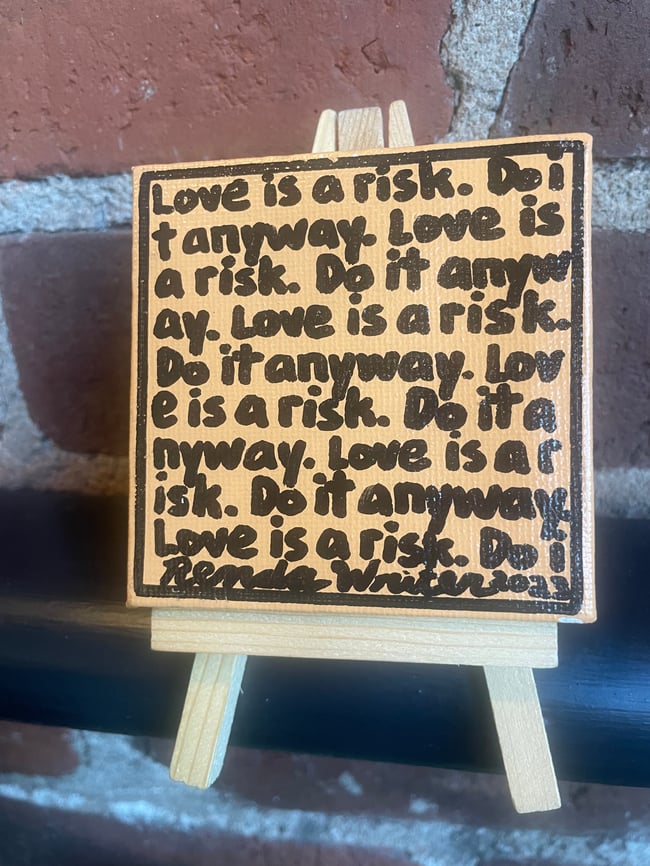 Love is a risk. Do i
t anyway. Love is
a risk. Do it anyw
ay. Love is a risk.
Do it anyway. Lov
e is a risk. Do it a
nyway. Love is a r
isk. Do it anyway.
Love is a risk. Do i
Renda Writer 2023